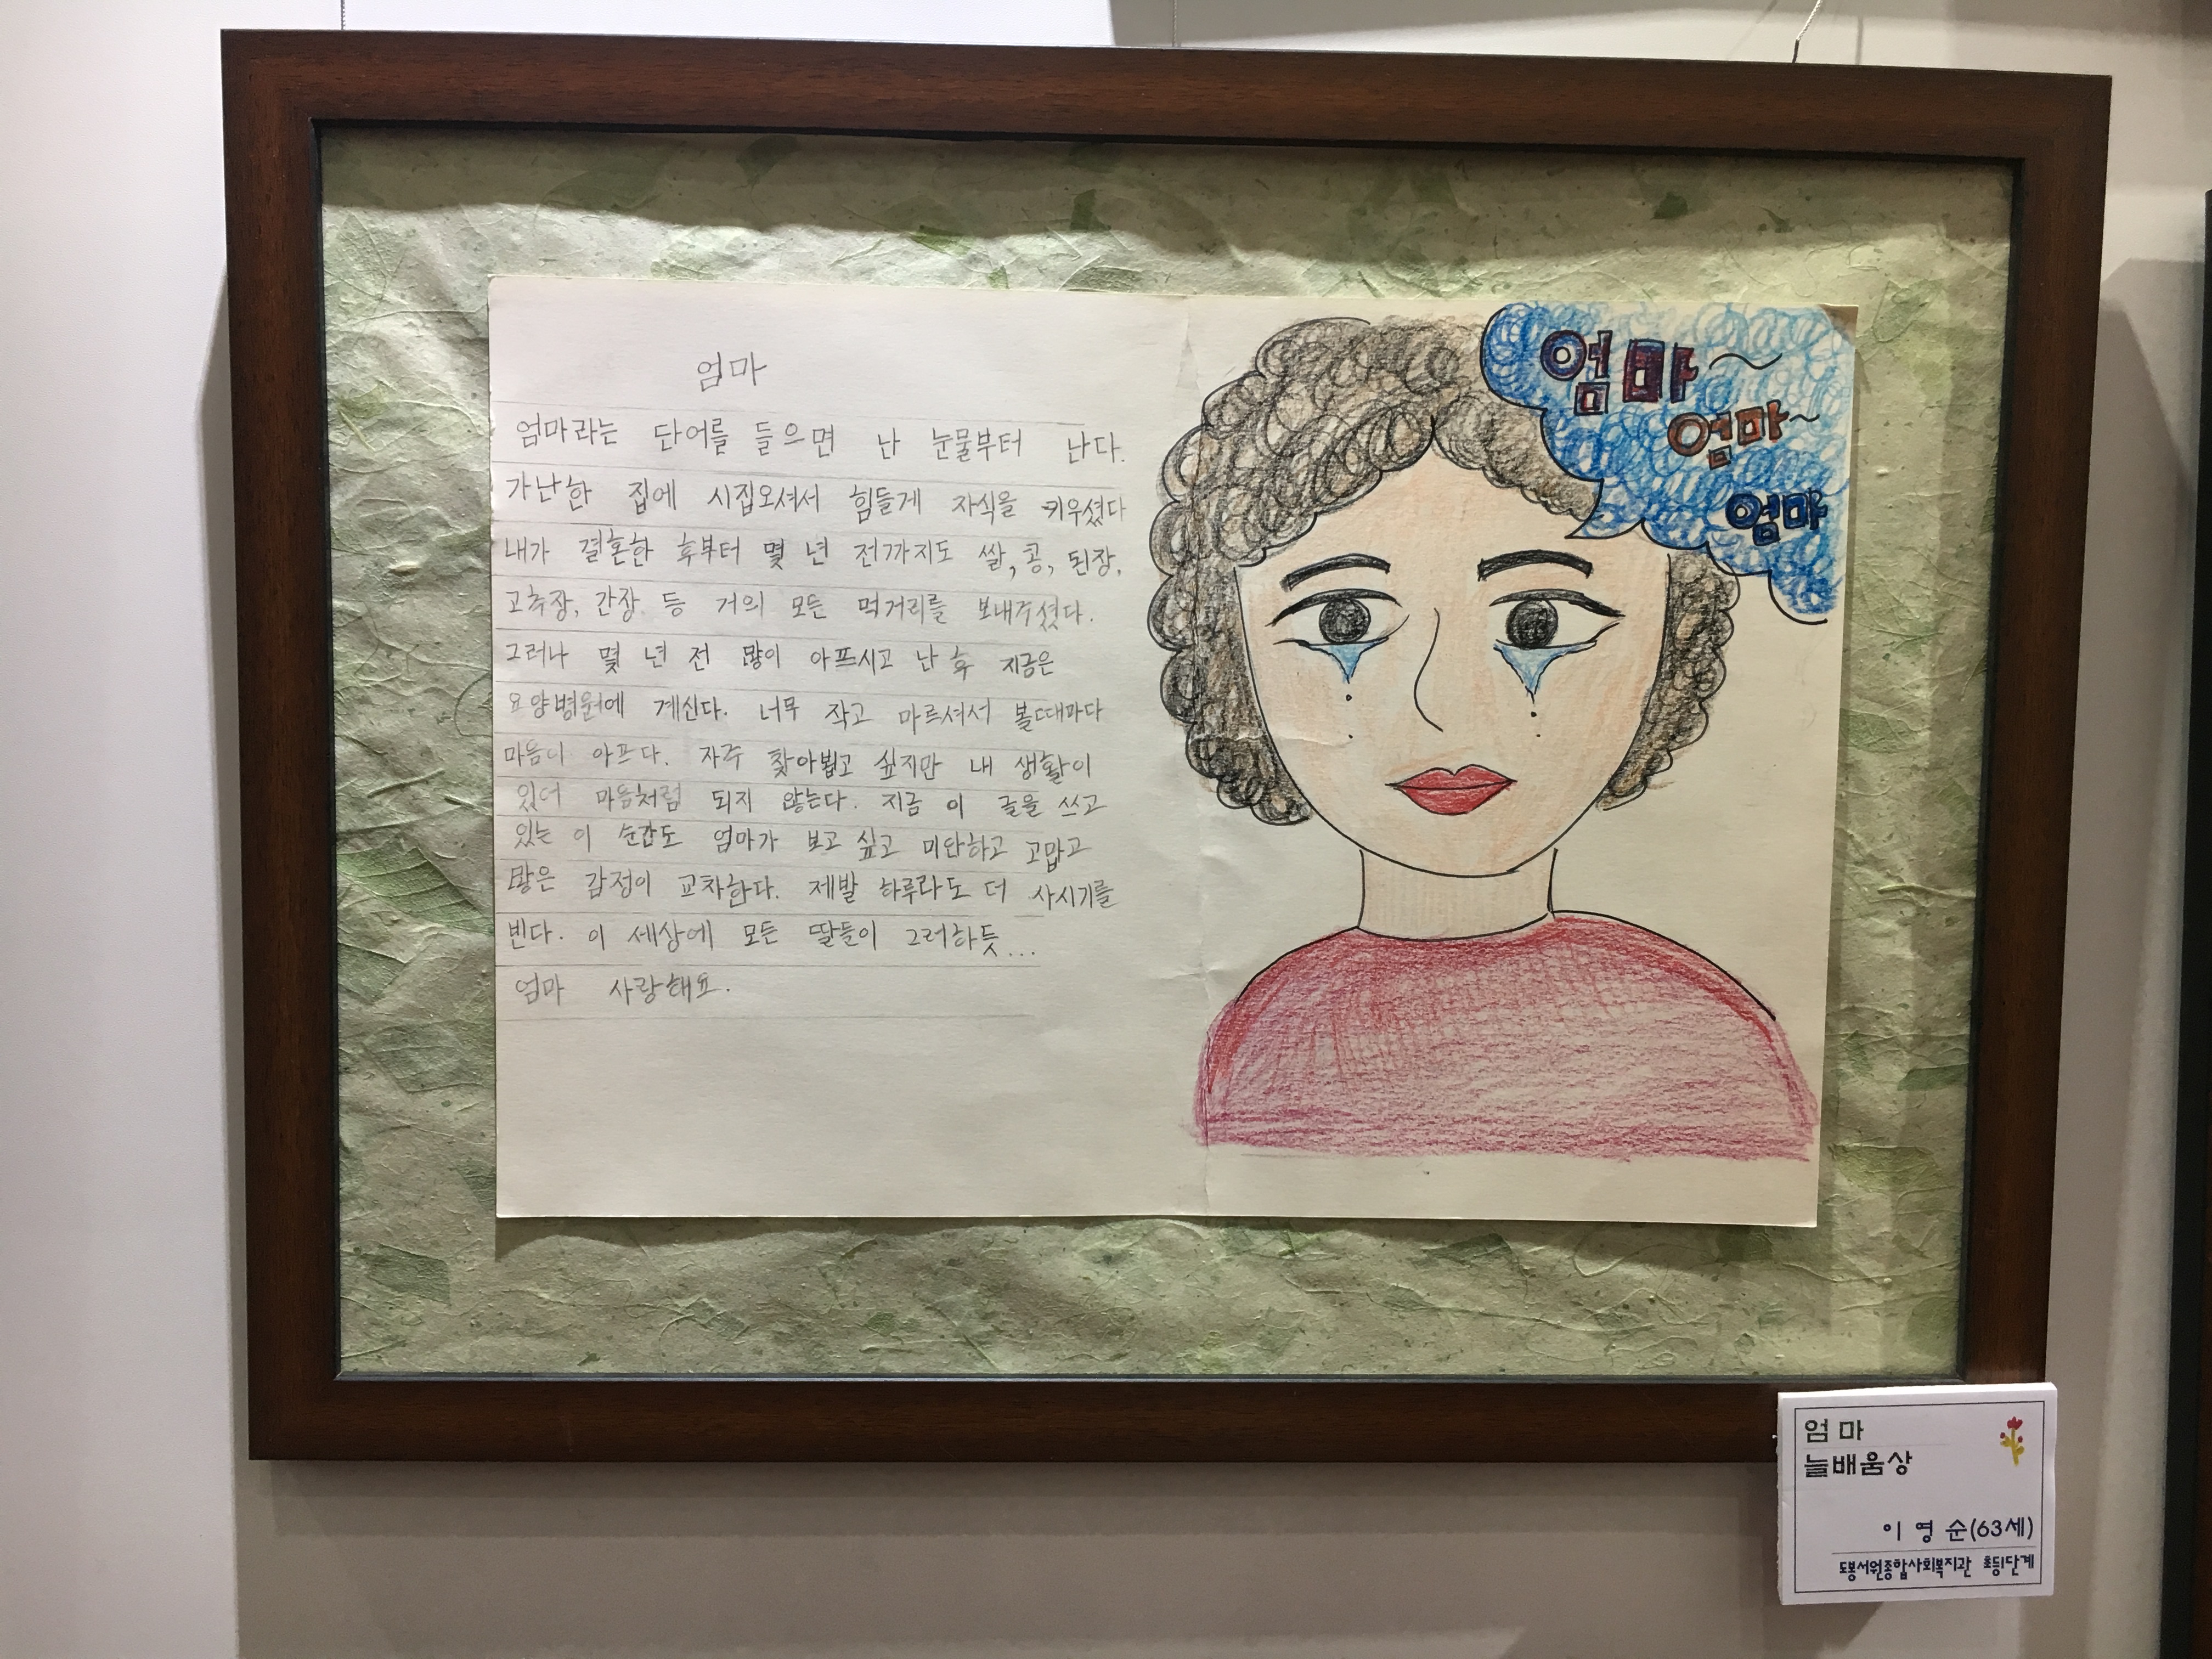 엄마
엄마라는 단어를 들으면 난 눈물부터 난다.
가난한 집에 시집오셔서 힘들게 자식을 키우셨다
내가 결혼한 후부터 몇 년 전까지도 쌀, 콩, 된장,
고추장, 간장 등 거의 모든 먹거리를 보내주셨다.
그러나 몇 년 전 많이 아프시고 난 후 지금은
요양병원에 계신다. 너무 작고 마르셔서 볼때마다
마음이 아프다. 자주 찾아뵙고 싶지만 내 생활이
있어 마음처럼 되지 않는다. 지금 이 글을 쓰고
있는 이 순간도 엄마가 보고 싶고 미안하고 고맙고
많은 감정이 교차한다. 제발 하루라도 더 사시기를
빈다. 이 세상에 모든 딸들이 그러하듯...
엄마 사랑해요.
엄마~
엄마~
엄마
엄마
늘배움상
이영순(63세)
도봉서원종합사회복지관 초등1단계